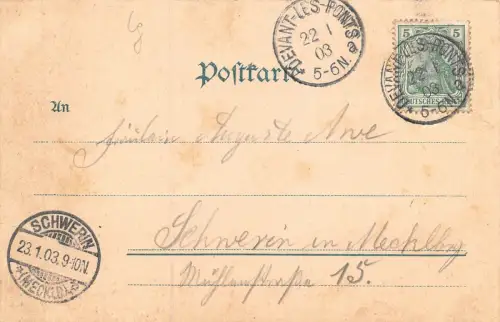 lg
*DEVANT-LES-PONTS* e
22 1
03
5-6N.
5 5
DEUTSCHES REICH
*DEVANT-LES-PONTS* e
22 1
03
5-6N.
Postkarte
An
Fräulein Auguste Arve
Schwerin in Mecklbg
Mühlenstraße 15.
SCHWERIN
23.1.03.9-10N.
*(MECKLB.)*